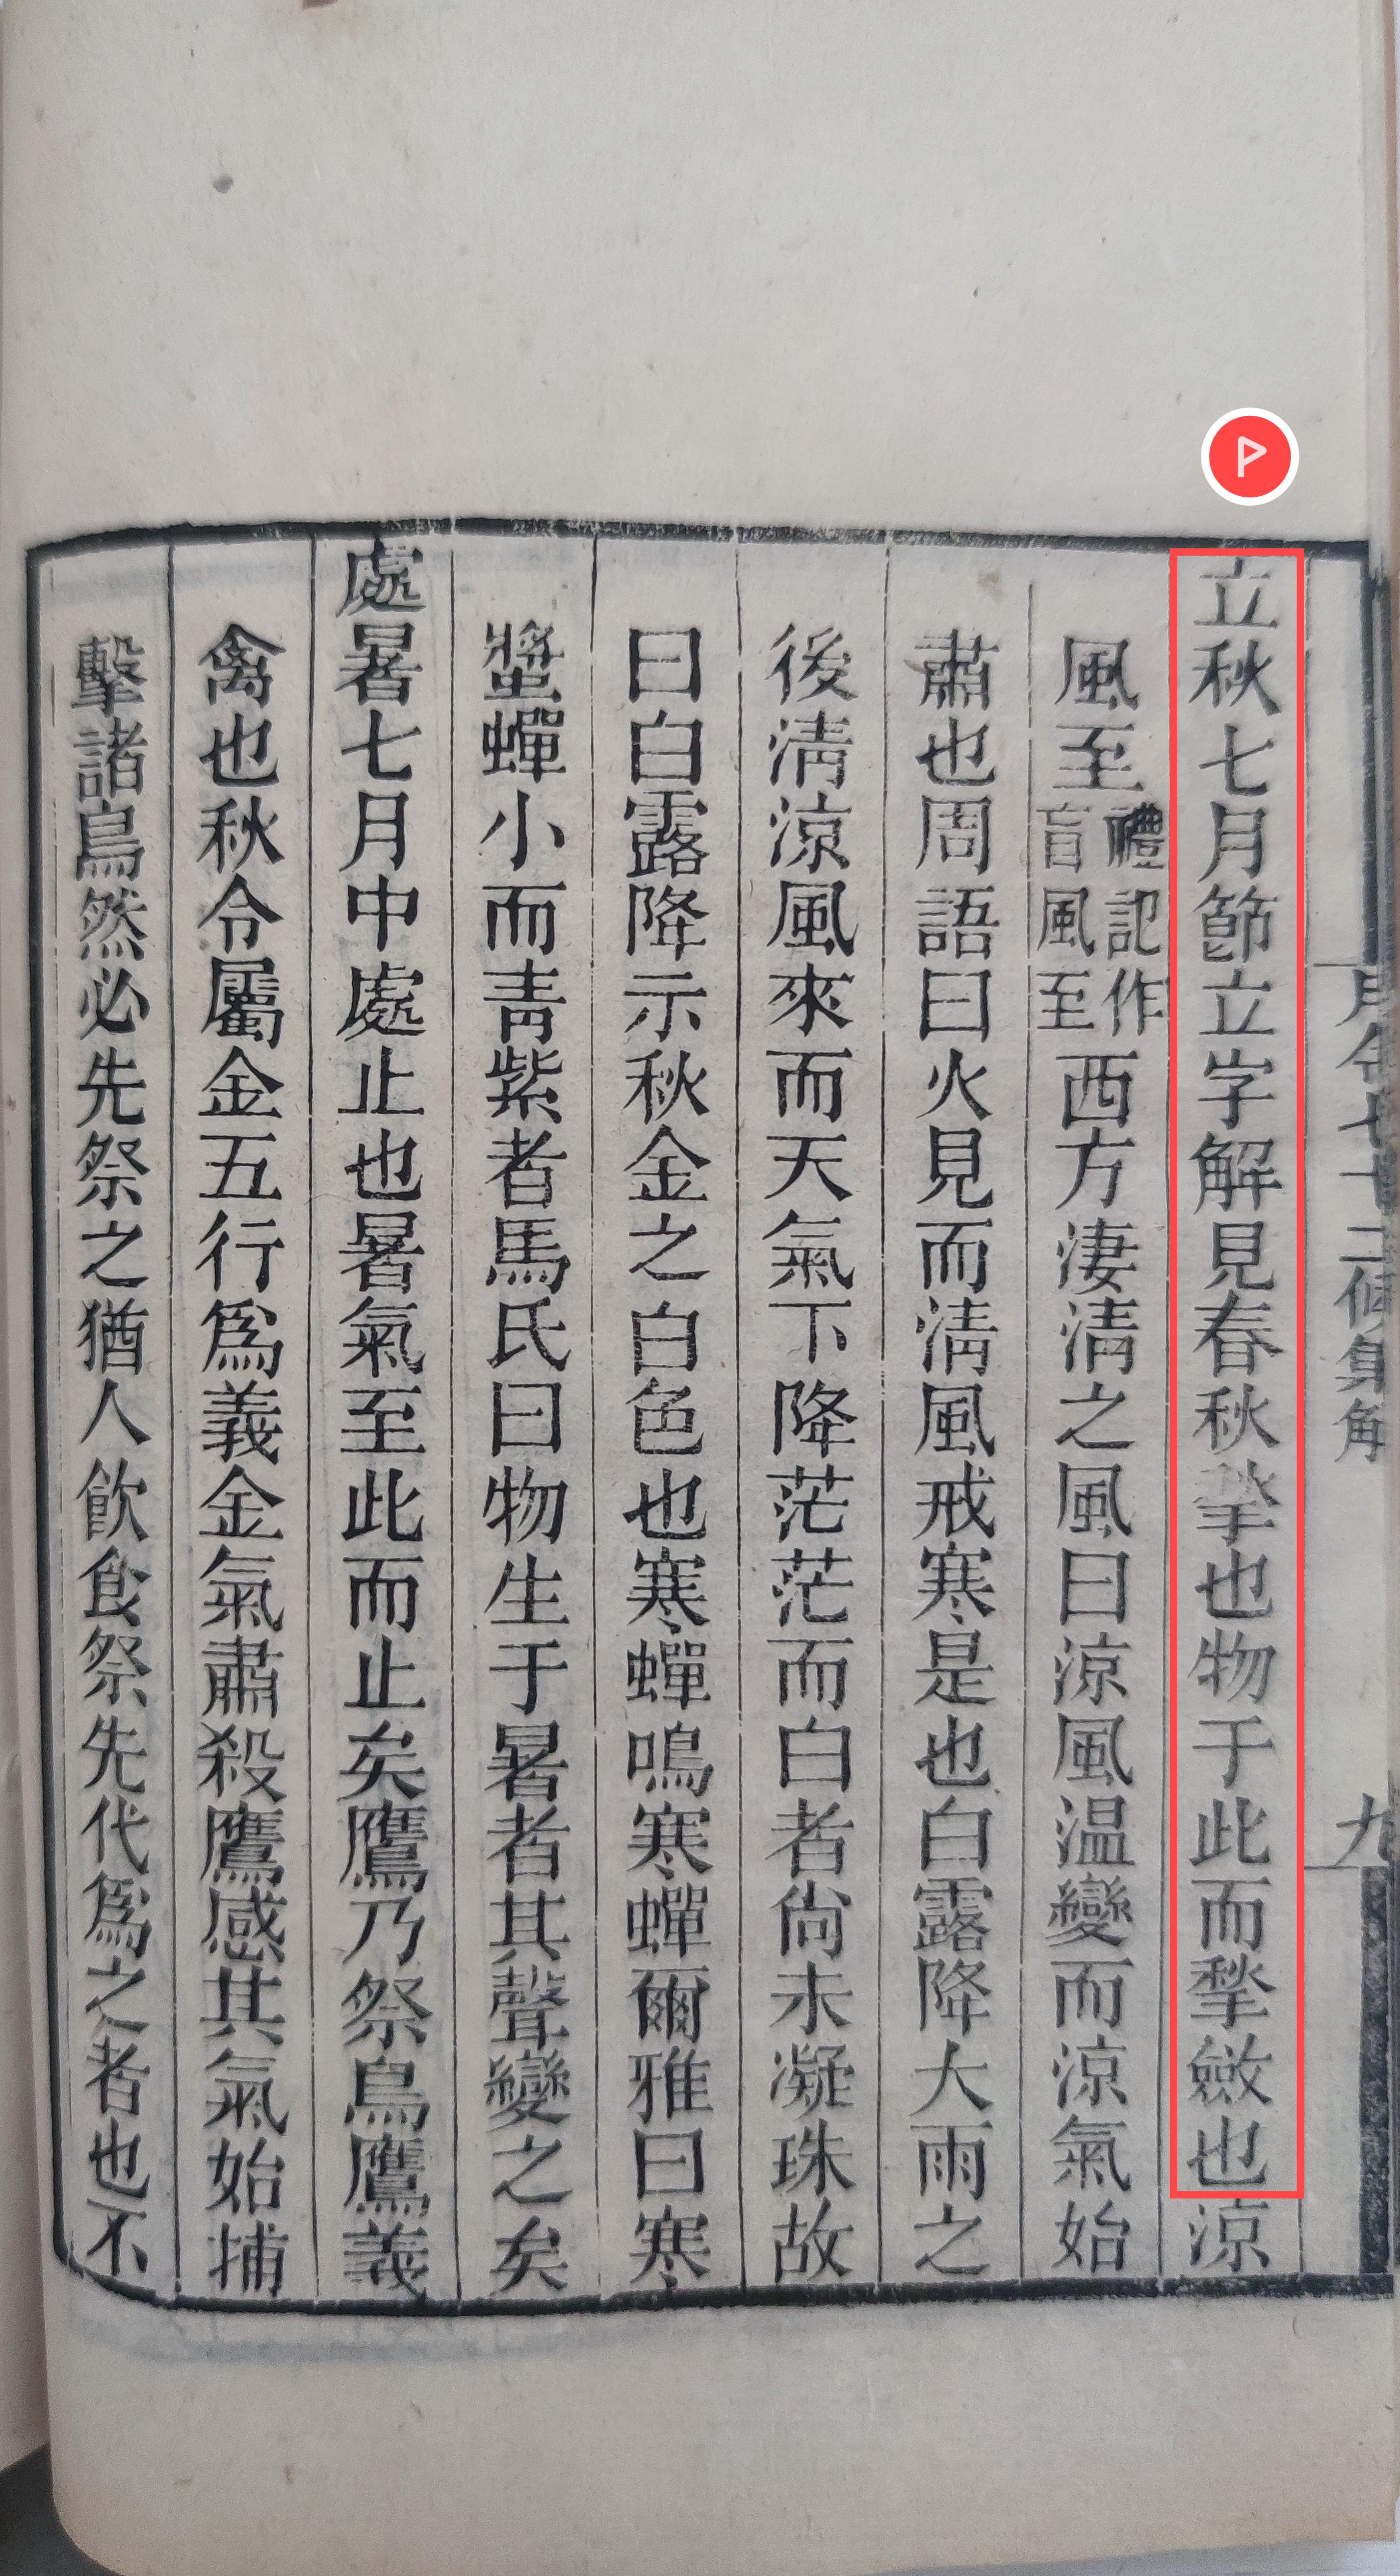 月令七十二候集解 九
立秋七月節立字解見春秋揫也物于此而揫斂也涼
風至禮記作盲風至西方淒清之風曰涼風温變而涼氣始
肅也周語曰火見而清風戒寒是也白露降大雨之
後清涼風來而天氣下降茫茫而白者尚未凝珠故
曰白露降示秋金之白色也寒蟬鳴寒蟬爾雅曰寒
螿蟬小而青紫者馬氏曰物生于暑者其聲變之矣
處暑七月中處止也暑氣至此而止矣鷹乃祭鳥鷹義
禽也秋令屬金五行爲義金氣肅殺鷹感其氣始捕
擊諸鳥然必先祭之猶人飲食祭先代爲之者也不